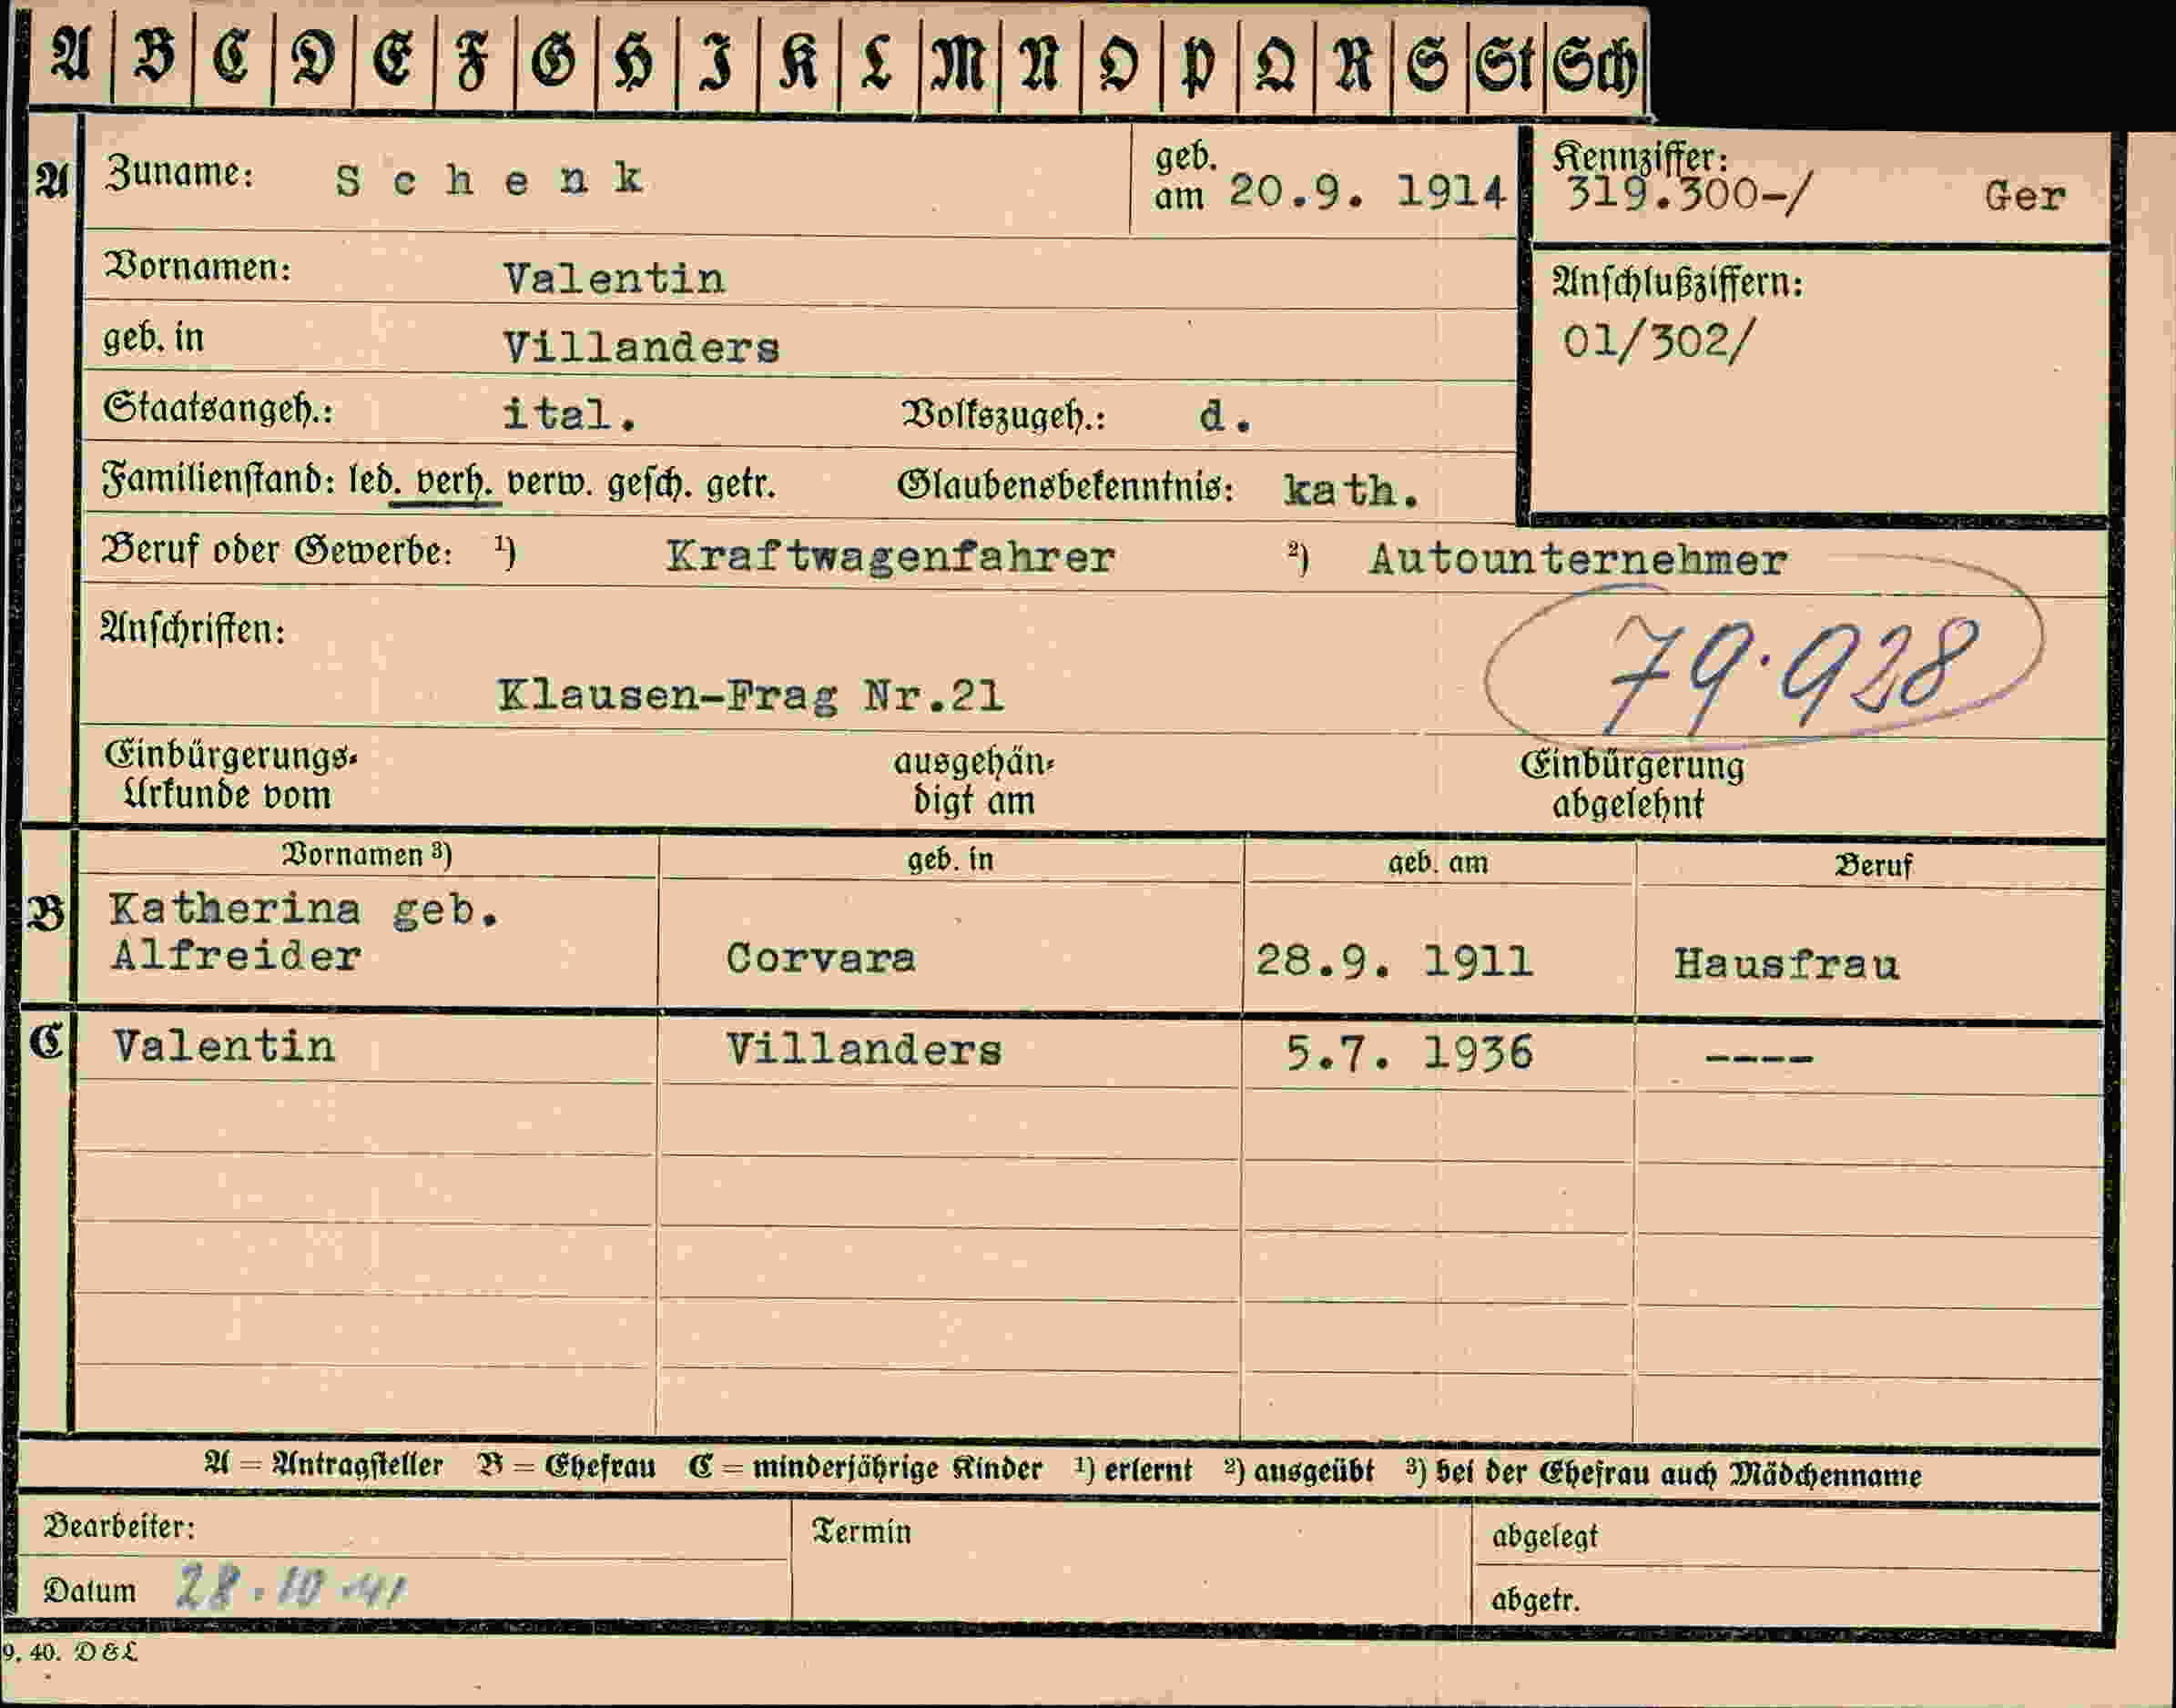 A B C D E F G H I K L M N O P Q R S St Sch
A Zuname: Schenk geb. am 20.9. 1914 Kennziffer: 319.300-/ Ger
Vornamen: Valentin Anschlußziffern:
geb. in Villanders 01/302/
Staatsangeh.: ital. Volkszugeh.: d.
Familienstand: led. verh. verw. gesch. getr. Glaubensbekenntnis: kath.
Beruf oder Gewerbe: ¹) Kraftwagenfahrer ²) Autounternehmer
Anschriften:
79.928
Klausen-Frag Nr.21
Einbürgerungs- ausgehän- Einbürgerung
Urkunde vom digt am abgelehnt
Vornamen ³) geb. in geb. am Beruf
B Katherina geb.
Alfreider Corvara 28.9. 1911 Hausfrau
C Valentin Villanders 5.7. 1936 ----
A = Antragsteller B = Ehefrau C = minderjährige Kinder ¹) erlernt ²) ausgeübt ³) bei der Ehefrau auch Mädchenname
Bearbeiter: Termin abgelegt
Datum 28.10.41 abgetr.
9. 40. D & L